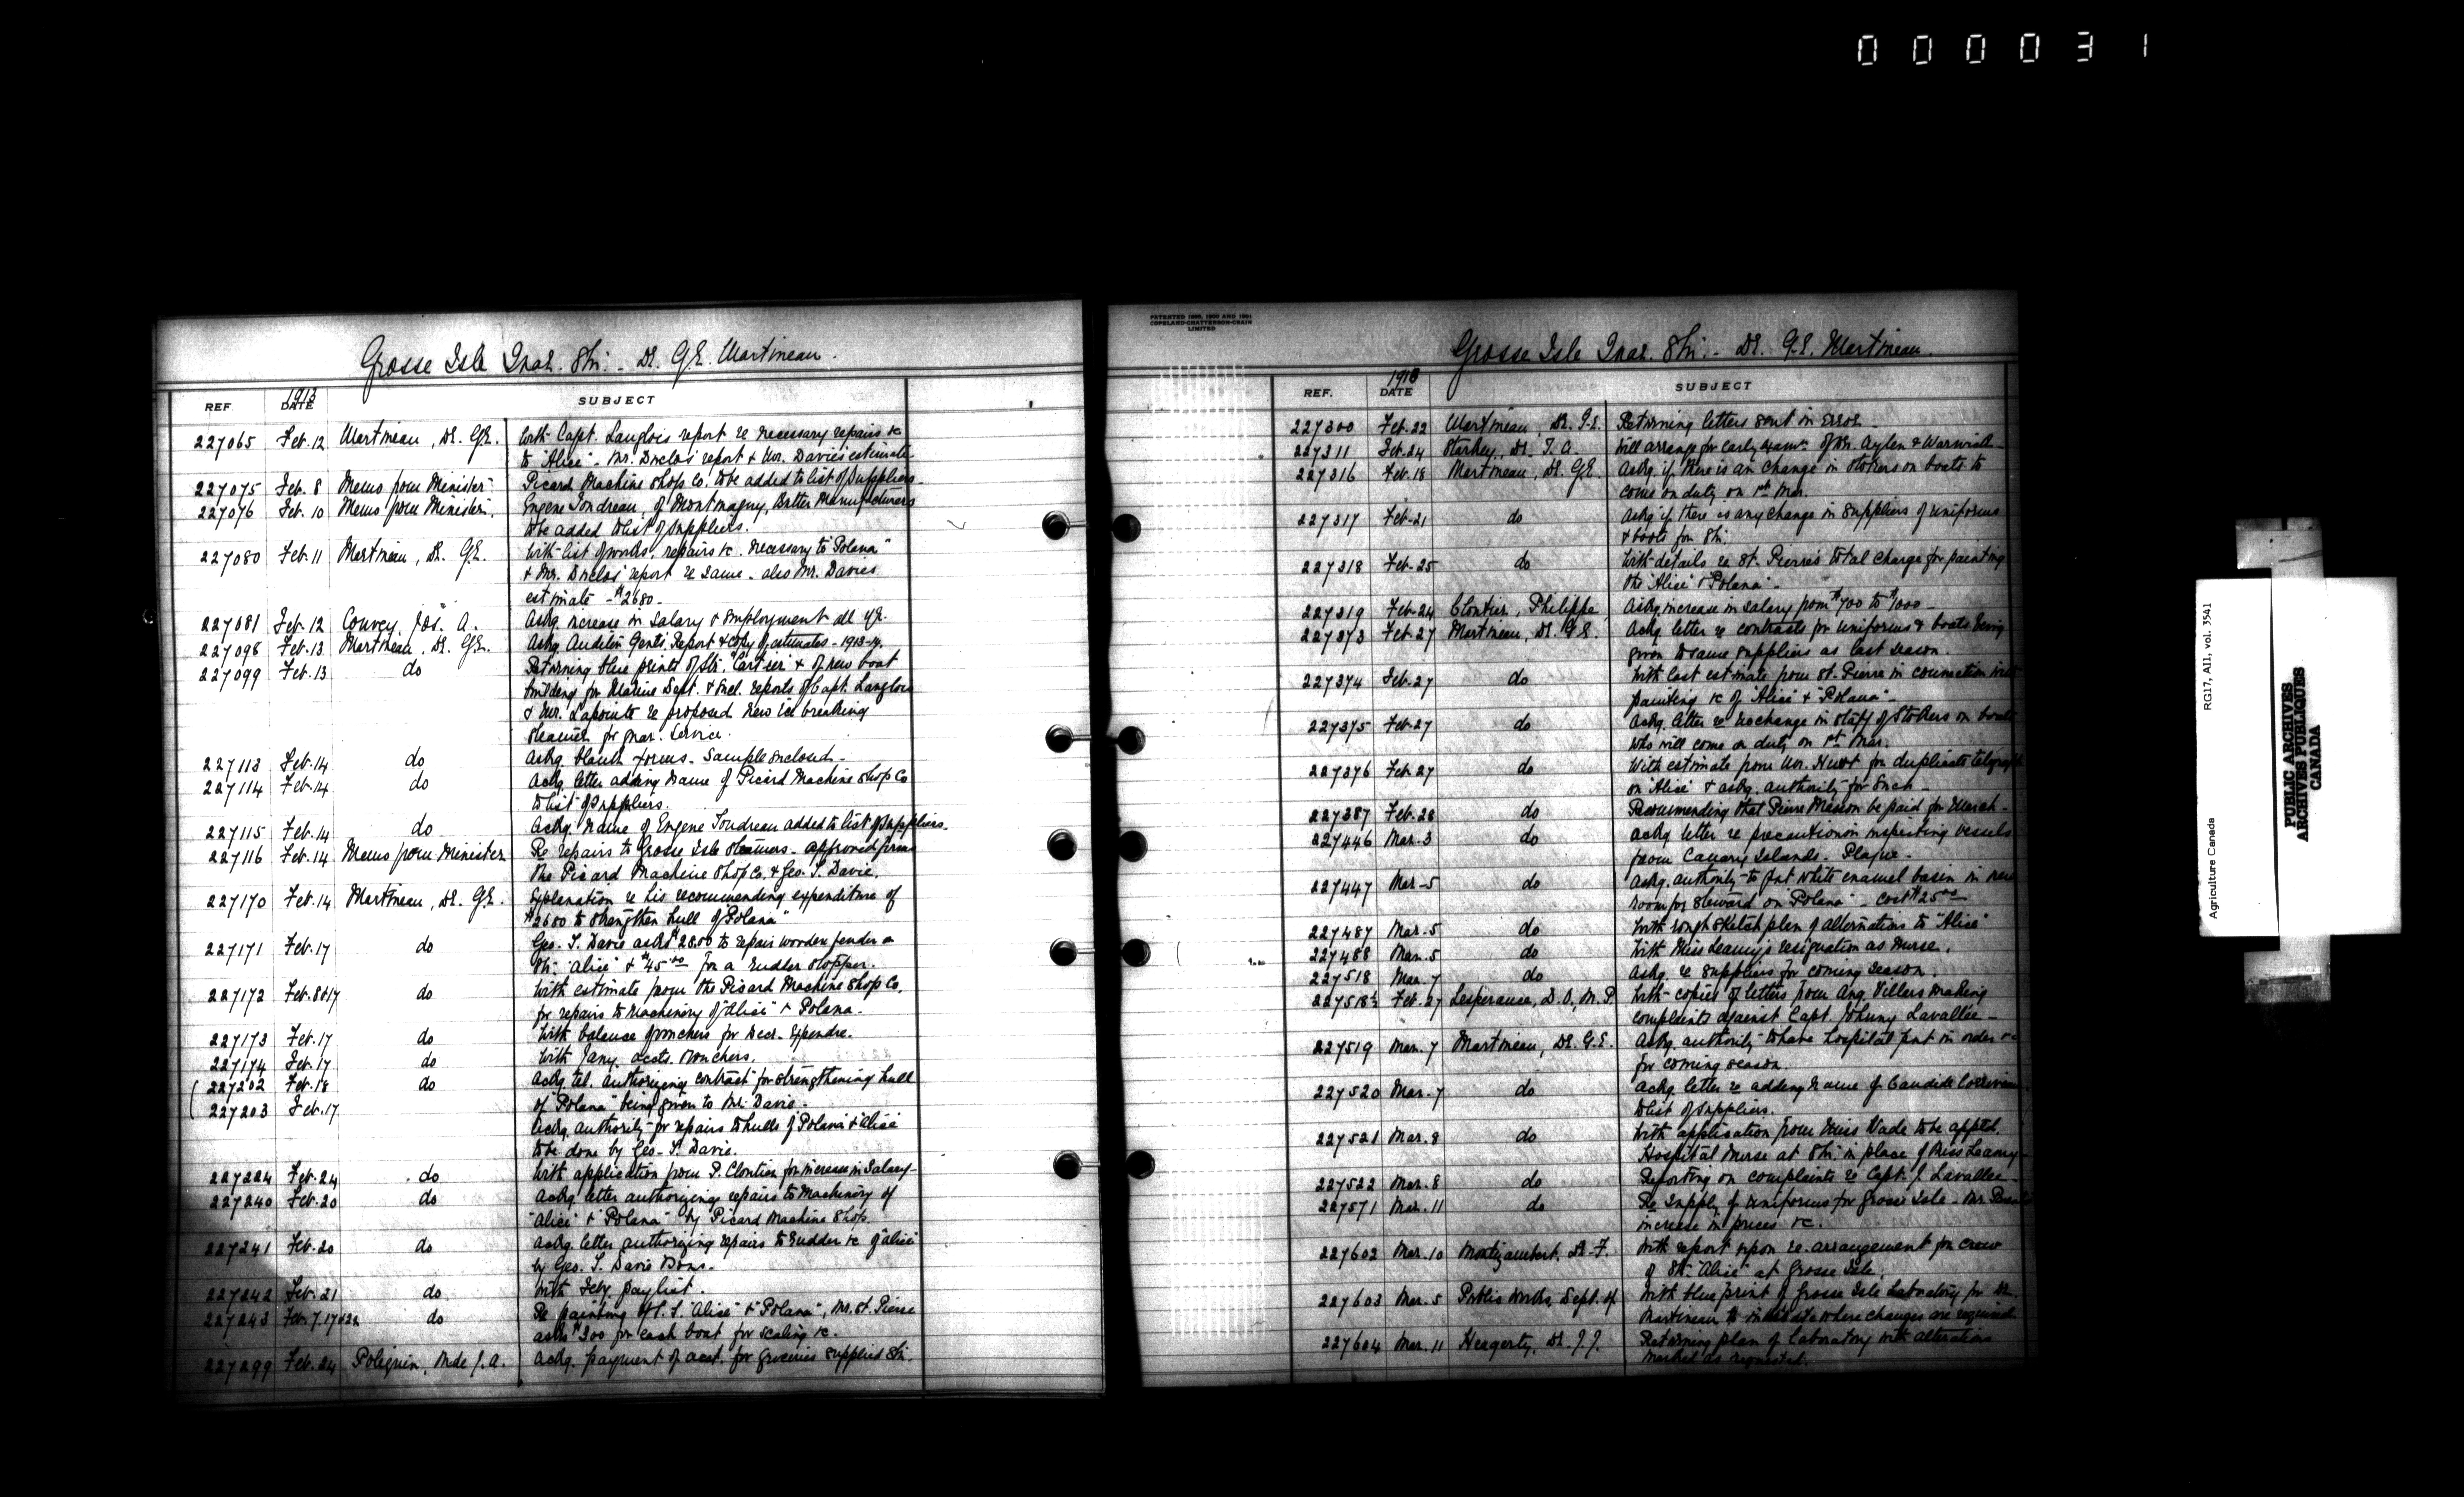 000031
Grosse Isle Quar. Stn. - Dr. G.E. Martineau.
REF 1913 DATE SUBJECT
227065 Feb. 12 Martineau, Dr. G.E. With Capt. Langlois report re necessary repairs &c
to "Alice" - Mr. Duclos' report & Mr. Davie's estimate
227075 Feb. 8 Memo from Minister Picard Machine Shop Co. to be added to list of Suppliers.
227076 Feb. 10 Memo from Minister. Eugene Tondreau, of Montmagny, Butter Manufacturers
to be added to list of Suppliers.
227080 Feb. 11 Martineau, Dr. G.E. With list of works, repairs &c. necessary to "Polana"
& Mr. Duclos' report re same - also Mr. Davies
estimate - $2680 -
227081 Feb. 12 Convey, Jos. A. Askg. increase in Salary & employment all yr.
227098 Feb. 13 Martineau, Dr. G.E. Askg. Auditor Genl's Report & copy of estimates - 1913-14.
227099 Feb. 13 do Returning blue prints of Str. "Cartier" & of new boat
building for Marine Dept. & encl. reports of Capt. Langlois
& Mr. Lapointe re proposed new ice breaking
steamer for Quar. Service.
227113 Feb. 14 do Askg. blank forms. Sample enclosed -
227114 Feb. 14 do Ackg. letter adding name of Picard Machine Shop Co
to list of Suppliers.
227115 Feb. 14 do Ackg. name of Eugene Tondreau added to list of Suppliers.
227116 Feb. 14 Memo from Minister Re repairs to Grosse Isle steamers - approved firms
the Picard Machine Shop Co. & Geo. T. Davie.
227170 Feb. 14 Martineau, Dr. G.E. Explanation re his recommending expenditure of
$2680 to strengthen hull of "Polana"
227171 Feb. 17 do Geo. T. Davie asks $2800 to repair wooden fender on
Str. "Alice" & $45.00 for a rudder stopper.
227172 Feb. 8 & 17 do With estimate from the Picard Machine Shop Co.
for repairs to Machinery of "Alice" & Polana.
227173 Feb. 17 do With balance of vouchers for Decr. Expendre.
227174 Feb. 17 do With Jany. accts. vouchers.
227202 Feb. 18 do Ackg. tel. authorizing contract for strengthening hull
of "Polana" being given to Mr. Davie.
227203 Feb. 17 Askg. authority for repairs to hulls of "Polana" & "Alice"
to be done by Geo. T. Davie.
227224 Feb. 24 do With application from P. Cloutier for increase in Salary -
227240 Feb. 20 do Ackg. letter authorizing repairs to Machinery of
"Alice" & "Polana" by Picard Machine Shop.
227241 Feb. 20 do Ackg. letter authorizing repairs to rudder &c of "Alice"
by Geo. T. Davie & Sons.
227242 Feb. 21 do With Feby. paylist.
227243 Feb. 7. 17 & 22 do Re painting of S.S. "Alice" & "Polana", Mr. St. Pierre
asks $300 for each boat for scaling &c.
227299 Feb. 24 Poliquin, Mde J.A. Askg. payment of acct. for groceries supplied Stn.
PATENTED 1898, 1900 AND 1901
COPELAND-CHATTERSON-CRAIN
LIMITED
Grosse Isle Quar. Stn. - Dr. G.E. Martineau.
REF. 1913 DATE SUBJECT
227300 Feb. 22 Martineau, Dr. G.E. Returning letters sent in error -
227311 Feb. 24 Starkey, Dr. T.A. Will arrange for early exam. of Drs. Aylen & Warwick -
227316 Feb. 18 Martineau, Dr. G.E. Askg. if there is an change in stokers on boats to
come on duty on 1st Mar.
227317 Feb. 21 do Askg. if there is any change in suppliers of uniforms
& boots for Stn.
227318 Feb. 25 do With details re St. Pierre's total charge for painting
the "Alice" & "Polana" -
227319 Feb. 24 Cloutier, Philippe, Askg. increase in salary from $700 to $1000 -
227373 Feb. 27 Martineau, Dr. G.E. Ackg. letter re contracts for uniforms & boots being
given to same suppliers as last season.
227374 Feb. 27 do With last estimate from St. Pierre in connection with
painting &c of "Alice" & "Polana" -
227375 Feb. 27 do Ackg. letter re no change in staff of Stokers on boats
who will come on duty on 1st Mar.
227376 Feb. 27 do With estimate from Mr. for duplicate telegraph
on "Alice" & askg. authority for such -
227387 Feb. 28 do Recommending that Pierre Masson be paid for March -
227446 Mar. 3 do Ackg. letter re precaution in inspecting vessels
from Canary Islands - Plague -
227447 Mar. 5 do Askg. authority to put white enamel basin in new
room for steward on "Polana" - cost $25.00
227487 Mar. 5 do With rough sketch plan of alternations to "Alice"
227488 Mar. 5 do With Miss Leamy's resignation as Nurse.
227518 Mar. 7 do Askg. re suppliers for coming season.
227518½ Feb. 27 Lesperance, D.O., M.P. With copies of letters from Aug. Villers making
complaints against Capt. Johnny Lavallee -
227519 Mar. 7 Martineau, Dr. G.E. Askg. authority to have hospital put in order &c
for coming season.
227520 Mar. 7 do Ackg. letter re adding name of Candide
to list of Suppliers.
227521 Mar. 8 do With application from Miss Wade to be apptd.
Hospital Nurse at Stn. in place of Miss Leamy -
227522 Mar. 8 do Reporting on complaints re Capt. J. Lavallee -
227571 Mar. 11 do Re Supply of uniforms for Grosse Isle - Mr.
increase in prices &c.
227602 Mar. 10 Montizambert, Dr. F. With report upon re-arrangement for crew
of Str. "Alice" at Grosse Isle.
227603 Mar. 5 Public Works, Dept. of With blue print of Grosse Isle Laboratory for Dr.
Martineau to indicate where changes are required
227604 Mar. 11 Heagerty, Dr. J.J. Returning plan of Laboratory with alterations
marked as requested.
Agriculture Canada RG17, AII, vol. 3541
PUBLIC ARCHIVES
ARCHIVES PUBLIQUES
CANADA